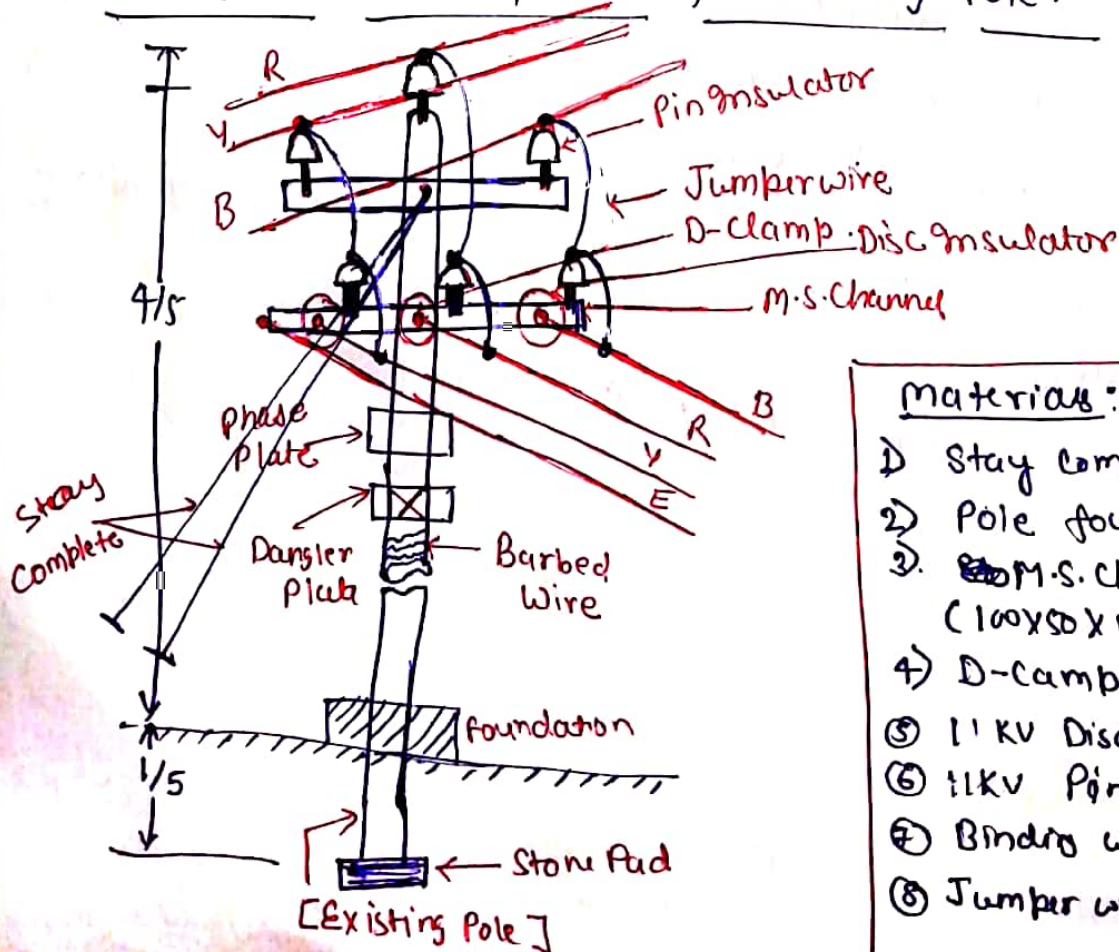 R
Y
B
Pin Insulator
Jumper wire
D-Clamp . Disc Insulator
M.S. Channel
4/5
Phase
Plate
B
R
Y
E
Stay
Complete
Dangler
Plate
Barbed
Wire
foundation
1/5
Stone Pad
[Existing Pole]
Materials:
1) Stay Com
2) Pole fou
3. M.S. C
(100x50x
4) D-Camp
⑤ 11 KV Disc
⑥ 11KV Pin
⑦ Binding w
⑧ Jumper w